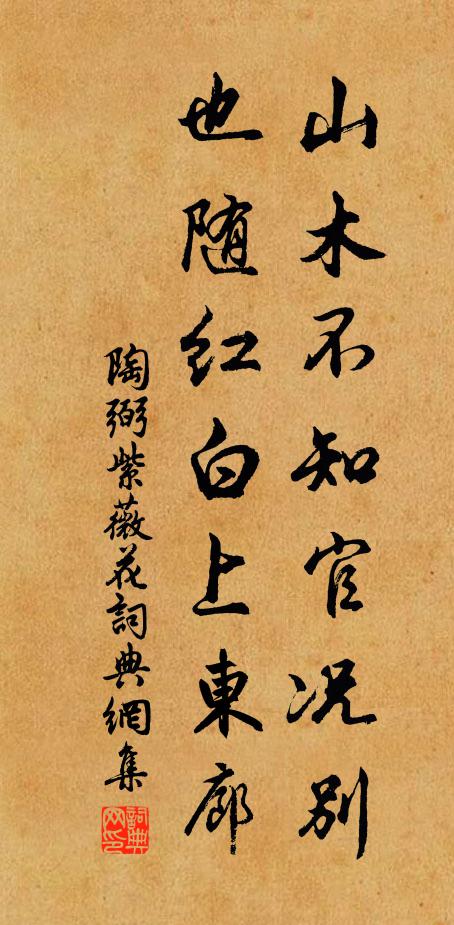 山木不知官况别
也随红白上東廊
陶弼紫薇花詞典網集
詞典网印